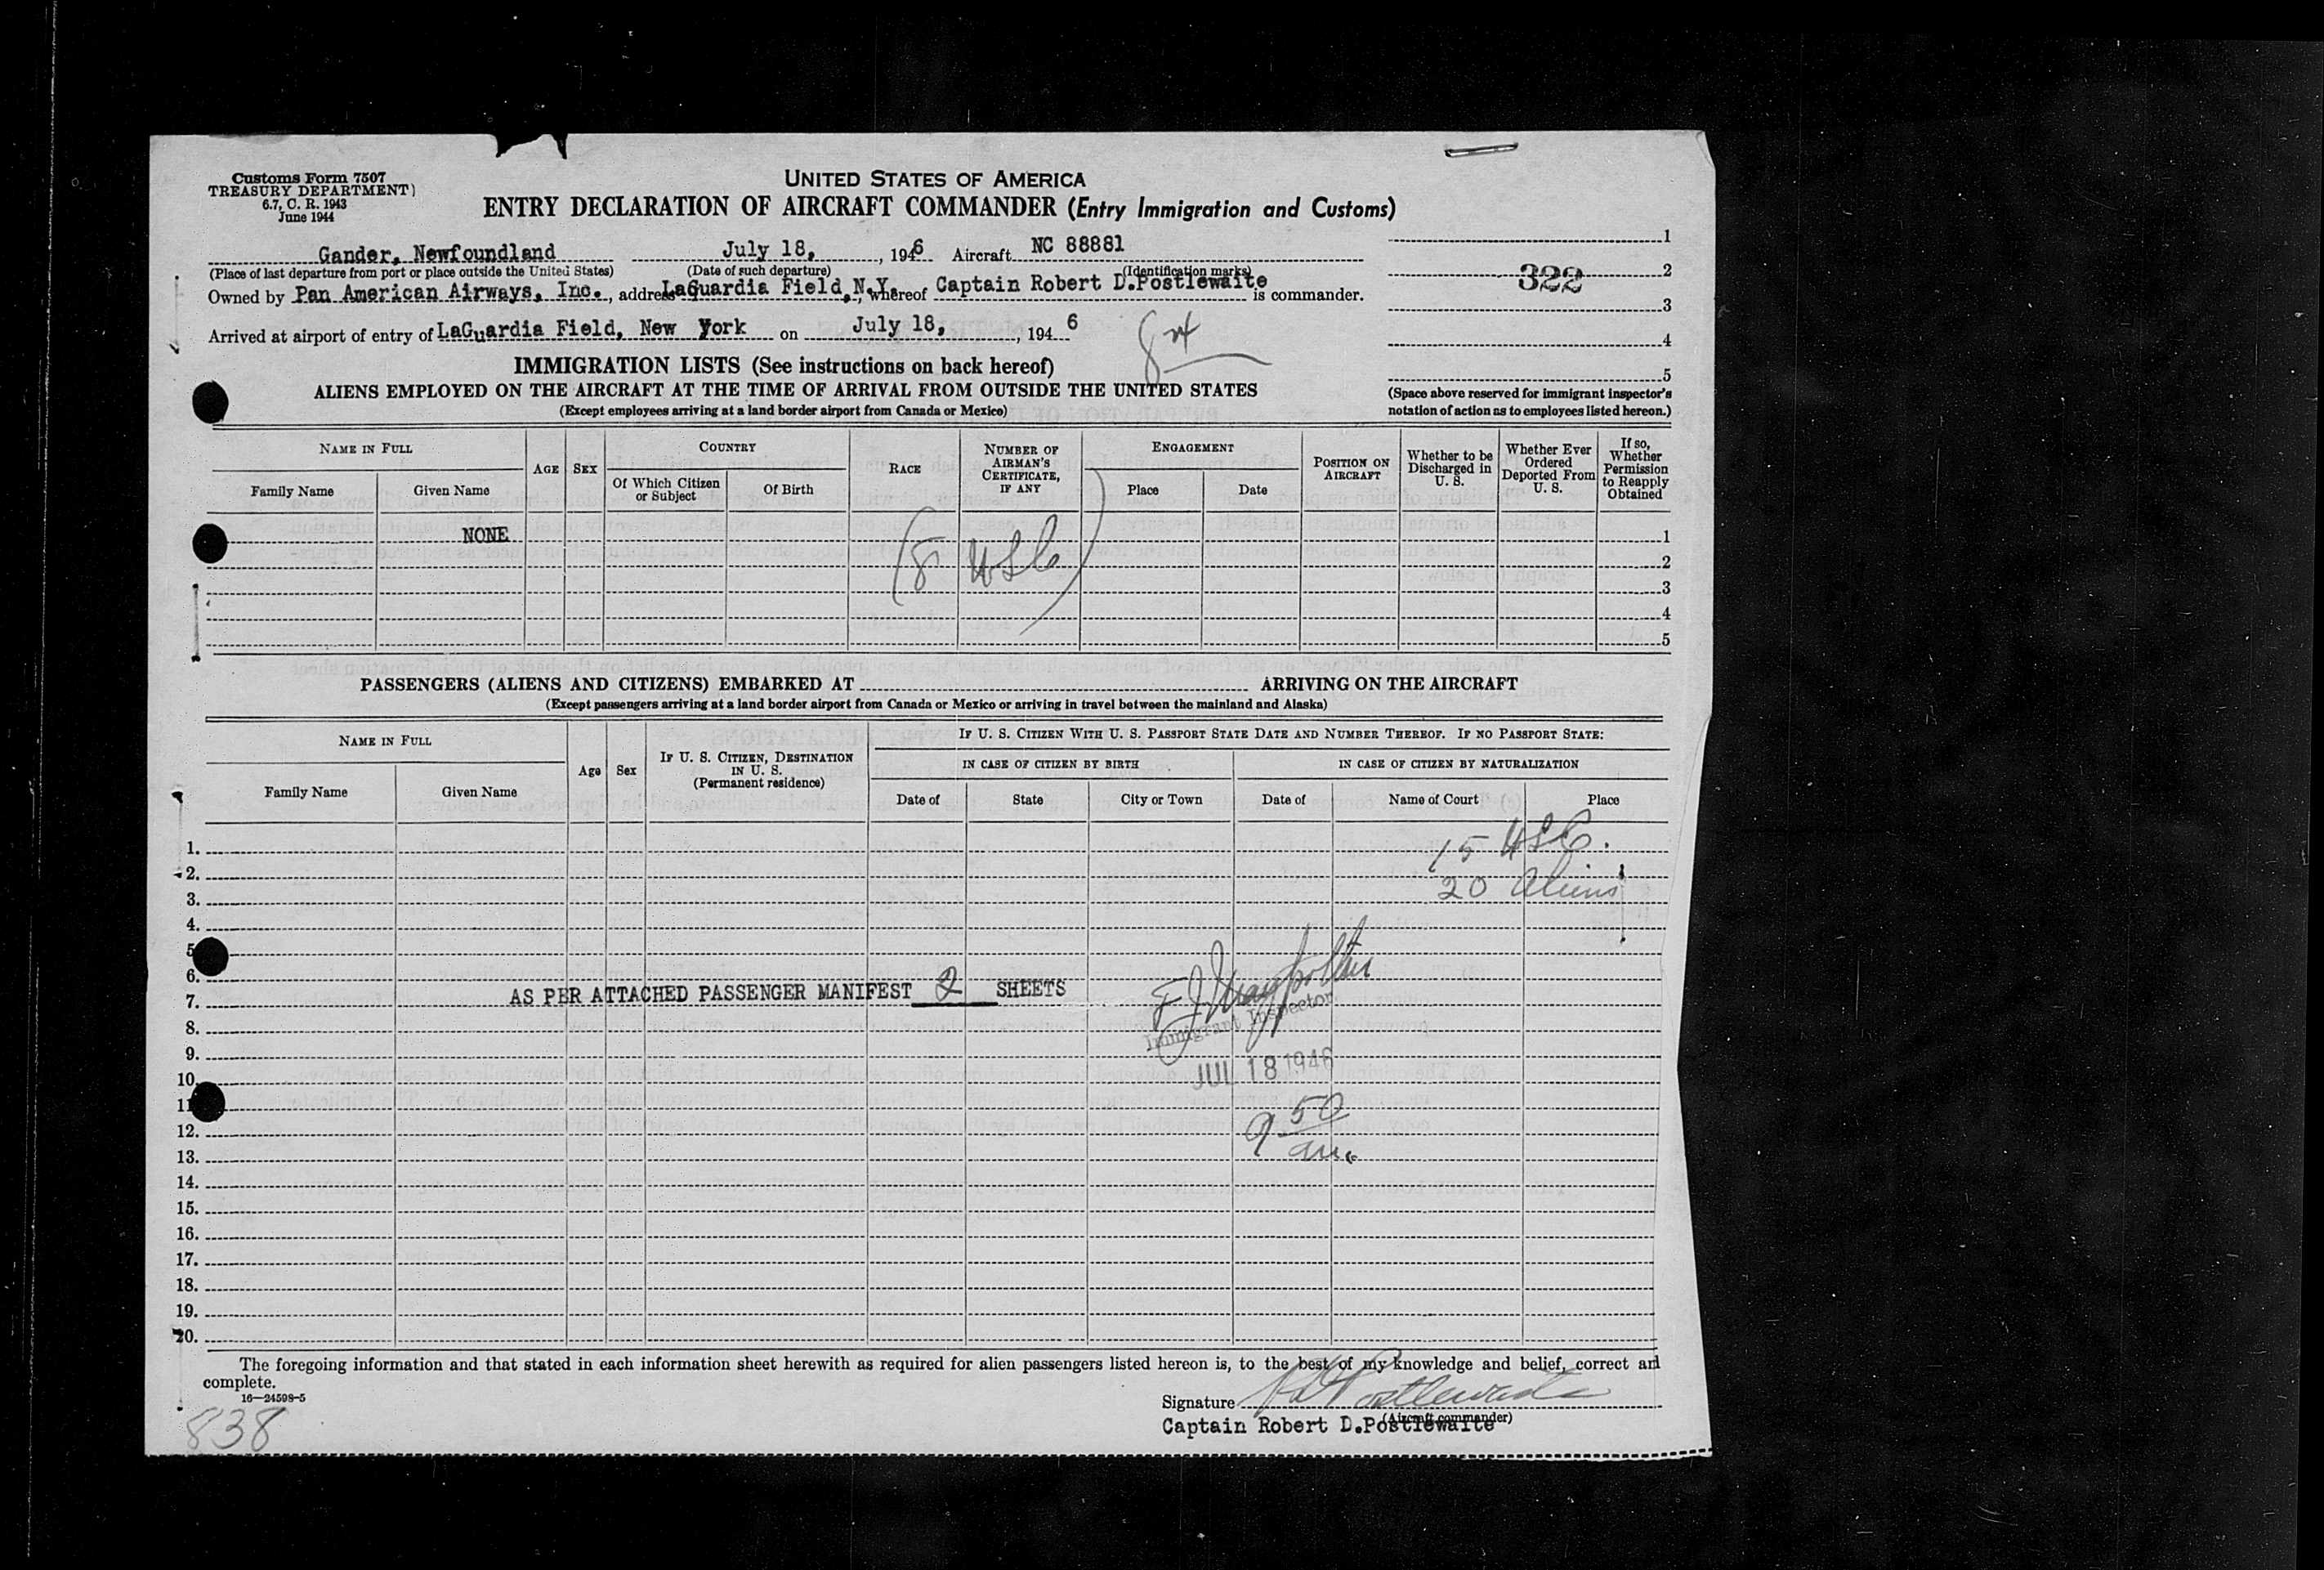 Customs Form 7507
TREASURY DEPARTMENT)
6.7, C. R. 1943
June 1944
UNITED STATES OF AMERICA
ENTRY DECLARATION OF AIRCRAFT COMMANDER (Entry Immigration and Customs)
Gander, Newfoundland July 18, , 1946 Aircraft NC 88881
(Place of last departure from port or place outside the United States) (Date of such departure) (Identification marks)
Owned by Pan American Airways, Inc. , address LaGuardia Field, N.Y. , whereof Captain Robert D.Postlewaite is commander.
Arrived at airport of entry of LaGuardia Field, New York on July 18, , 194 6
1
322 2
3
4
5
(Space above reserved for immigrant inspector's
notation of action as to employees listed hereon.)
IMMIGRATION LISTS (See instructions on back hereof)
ALIENS EMPLOYED ON THE AIRCRAFT AT THE TIME OF ARRIVAL FROM OUTSIDE THE UNITED STATES
(Except employees arriving at a land border airport from Canada or Mexico)
NAME IN FULL
Family Name Given Name
AGE SEX
COUNTRY
Of Which Citizen or Subject Of Birth
RACE
NUMBER OF AIRMAN'S CERTIFICATE, IF ANY
ENGAGEMENT
Place Date
POSITION ON AIRCRAFT
Whether to be Discharged in U. S.
Whether Ever Ordered Deported From U. S.
If so, Whether Permission to Reapply Obtained
NONE 1
(8 USC) 2
3
4
5
PASSENGERS (ALIENS AND CITIZENS) EMBARKED AT ARRIVING ON THE AIRCRAFT
(Except passengers arriving at a land border airport from Canada or Mexico or arriving in travel between the mainland and Alaska)
NAME IN FULL
Family Name Given Name
Age Sex
IF U. S. CITIZEN, DESTINATION IN U. S.
(Permanent residence)
IF U. S. CITIZEN WITH U. S. PASSPORT STATE DATE AND NUMBER THEREOF. IF NO PASSPORT STATE:
IN CASE OF CITIZEN BY BIRTH IN CASE OF CITIZEN BY NATURALIZATION
Date of State City or Town Date of Name of Court Place
1. 15 USC.
2. 20 Aliens
3.
4.
5
6.
7. AS PER ATTACHED PASSENGER MANIFEST 2 SHEETS
8. Immigrant Inspector
9.
10. JUL 18 1946
11
12. 9 50
13. am.
14.
15.
16.
17.
18.
19.
20.
The foregoing information and that stated in each information sheet herewith as required for alien passengers listed hereon is, to the best of my knowledge and belief, correct and
complete.
16—24598-5
Signature R D Postlewaite
(Aircraft commander)
Captain Robert D.Postlewaite
838